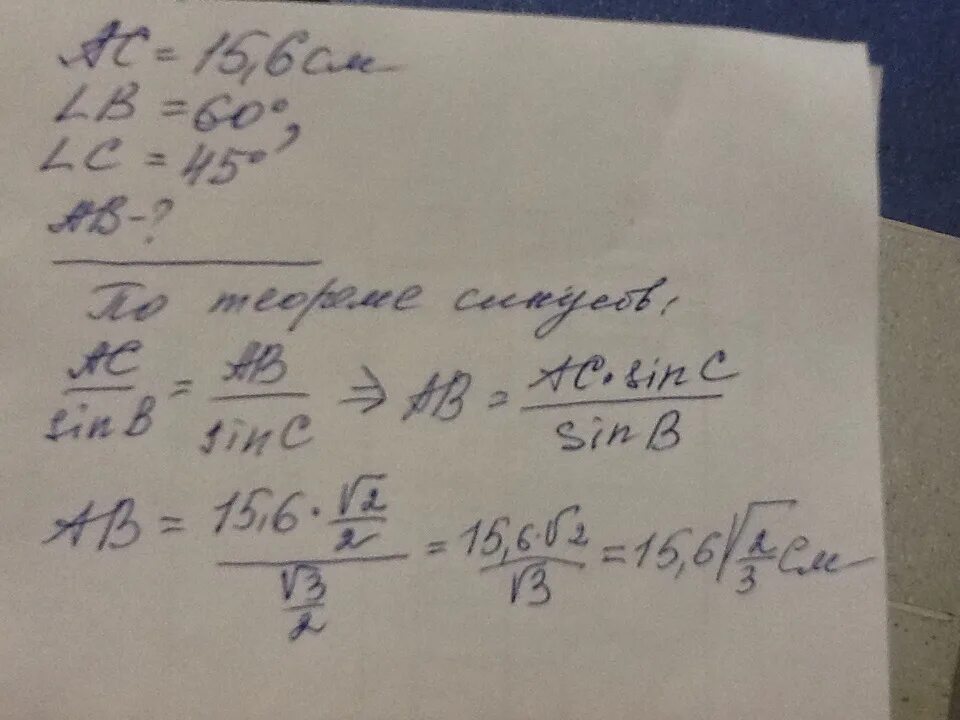 AC = 15,6 см
∠B = 60°,
∠C = 45°
AB - ?
По теореме синусов,
AC/sinB = AB/sinC ⇒ AB = AC·sinC/sinB
AB = (15,6·√2/2)/(√3/2) = 15,6·√2/√3 = 15,6√(2/3) см